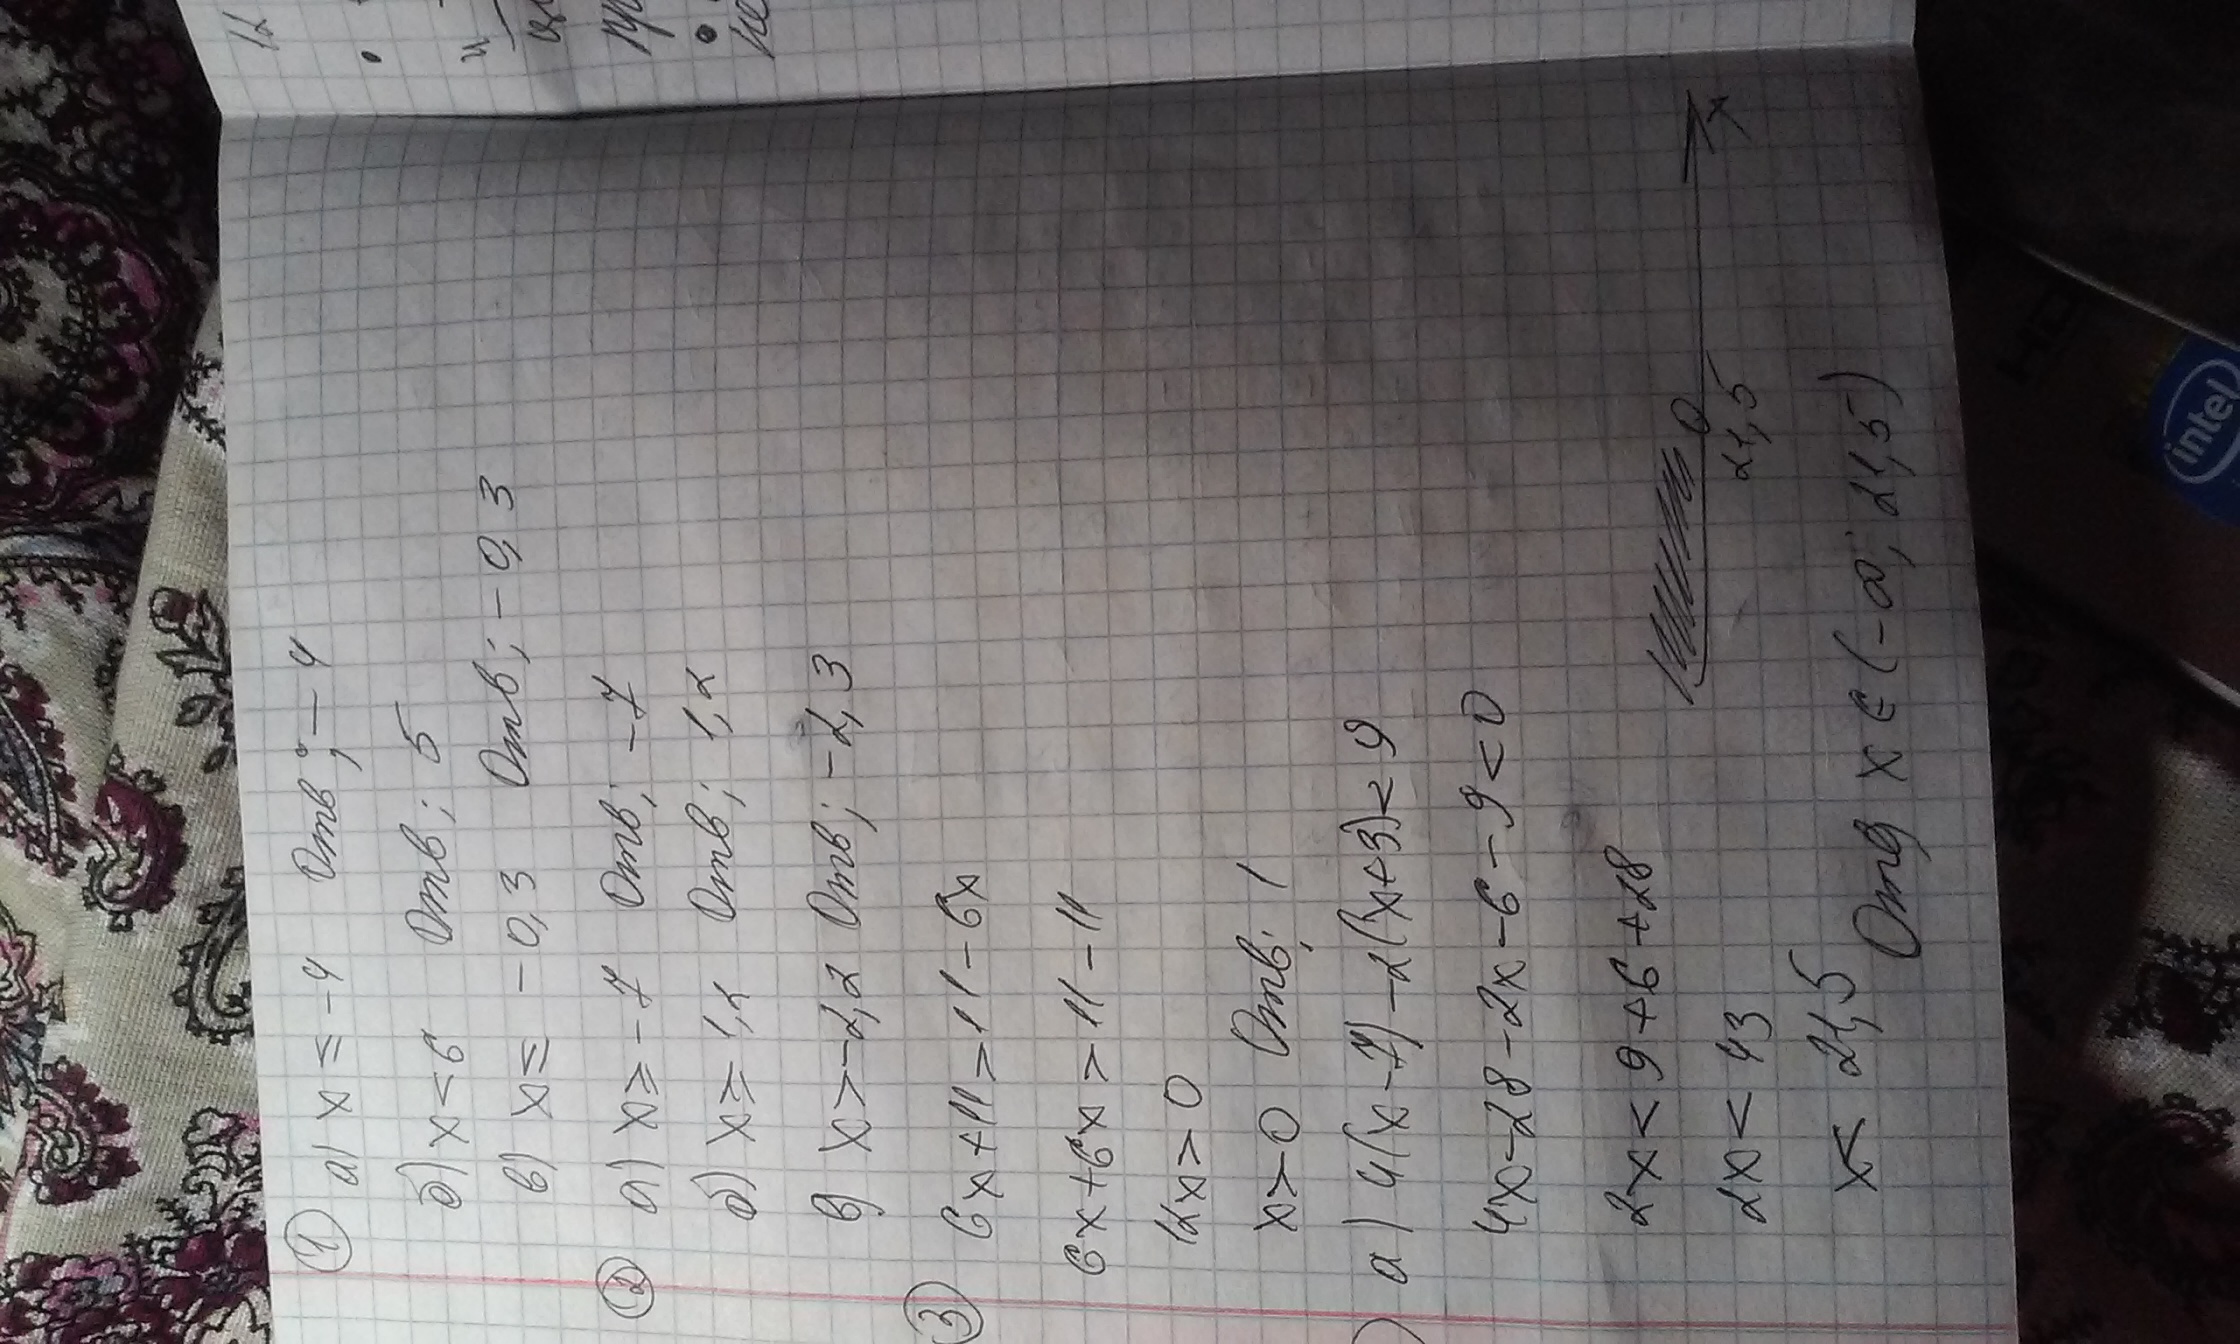 ① а) x ≤ -4 Отв; -4
б) x < 6 Отв; 5
в) x ≤ -0,3 Отв; -0,3
② а) x ≥ -7 Отв; -7
б) x ≥ 1,2 Отв; 1,2
в) x > -2,2 Отв; -2,3
③ 6x + 11 > 11 - 6x
6x + 6x > 11 - 11
12x > 0
x > 0 Отв; 1
) а) 4(x-7) - 2(x+3) < 9
4x - 28 - 2x - 6 - 9 < 0
2x < 9 + 6 + 28
2x < 43
21,5 x
x < 21,5 Отв x ∈ (-∞; 21,5)
intel